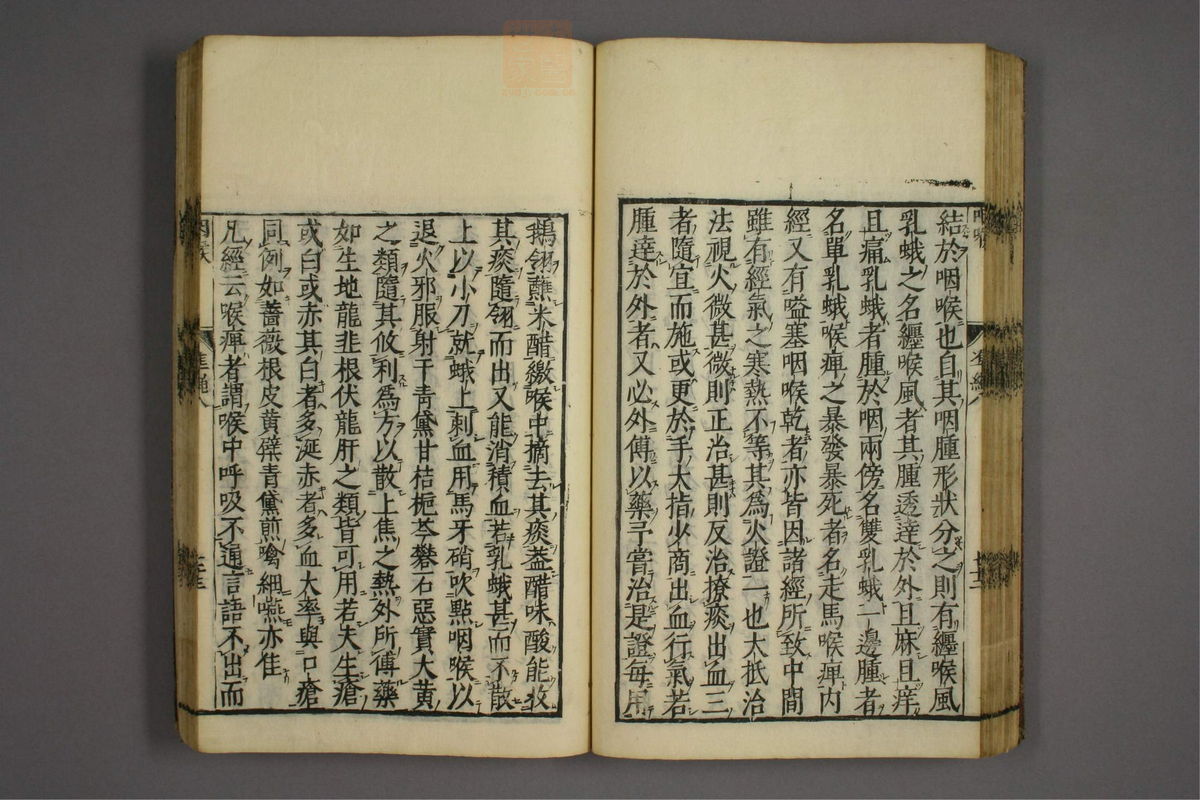 結於咽喉也自其咽腫形狀分之則有纏喉風
乳蛾之名纏喉風者其腫透達於外且麻且痒
且痛乳蛾者腫於咽兩傍名雙乳蛾一邊腫者
名單乳蛾喉痺之暴發暴死者名走馬喉痺内
經又有嗌塞咽喉乾者亦皆因諸經所致中間
雖有經氣之寒熱不等其爲火證一也大抵治
法視火微甚微則正治甚則反治撩痰出血三
者隨宜而施或更於手大指少商出血行氣若
腫達於外者又必外傅以藥予嘗治是證毎用
鵝翎蘸米醋繳喉中摘去其痰葢醋味酸能收
其痰隨翎而出又能消積血若乳蛾甚而不散
上以小刀就蛾上刺血用馬牙硝吹點咽喉以
退火邪服射干青黛甘桔梔芩礬石惡實大黄
之類隨其攸利爲方以散上焦之熱外所傅藥
如生地龍韭根伏龍肝之類皆可用若夫生瘡
或白或赤其白者多涎赤者多血大率與口瘡
同例如薔薇根皮黄蘗青黛煎噙細嚥亦佳
凡經云喉痺者謂喉中呼吸不通言語不出而